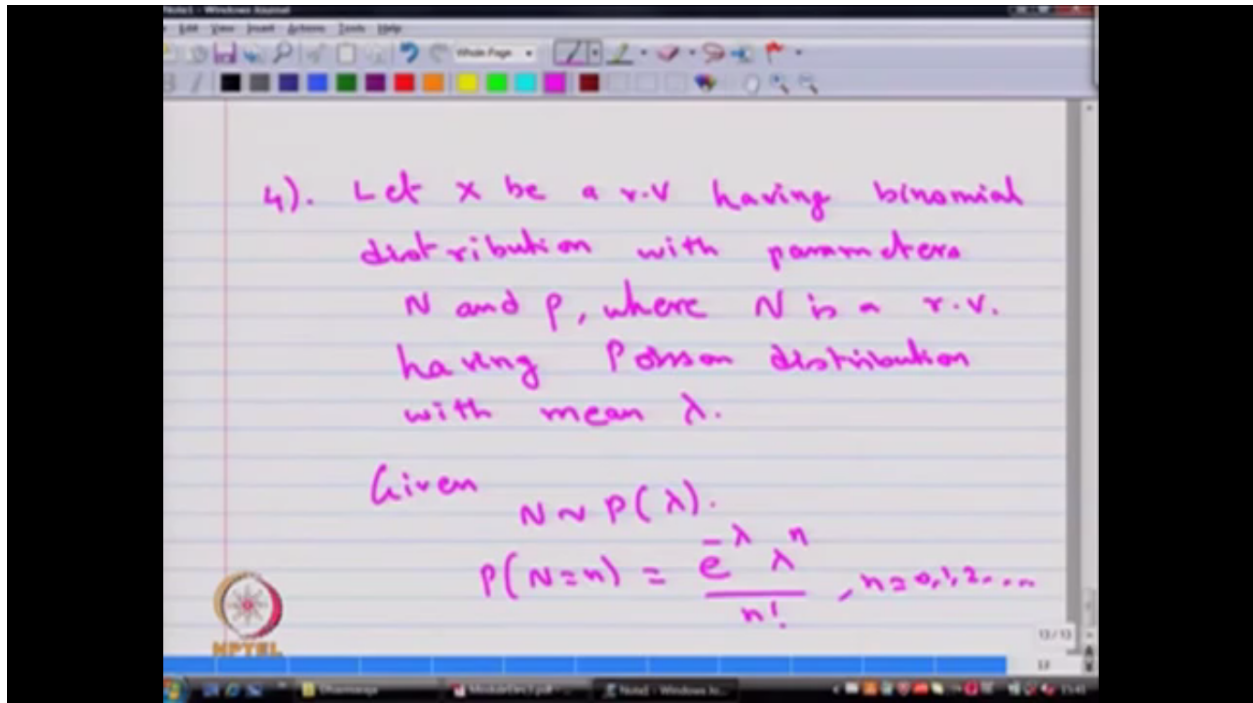 Note1 - Windows Journal
Edit View Insert Actions Tools Help
Whole Page
4). Let X be a r.v having binomial
distribution with parameters
N and p, where N is a r.v.
having Poisson distribution
with mean λ.
Given
N ~ P(λ).
P(N=n) = e^{-λ} λ^n / n! , n=0,1,2....
NPTEL
13/13
13
Note1 - Windows Jo...